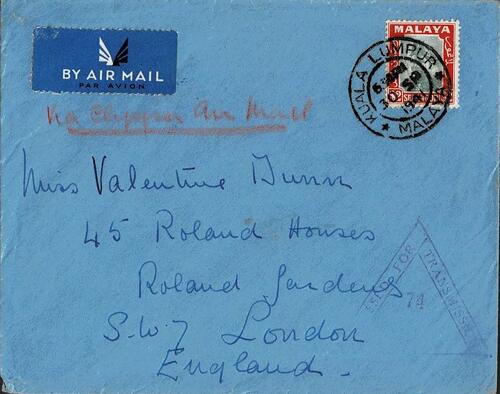 BY AIR MAIL
PAR AVION
MALAYA
KUALA LUMPUR
MALAYA
Via Clipper Air Mail
Miss Valentine Dunn
45 Roland Houses
Roland Gardens
S.W.7 London
England.
FOR TRANSMISSION
74